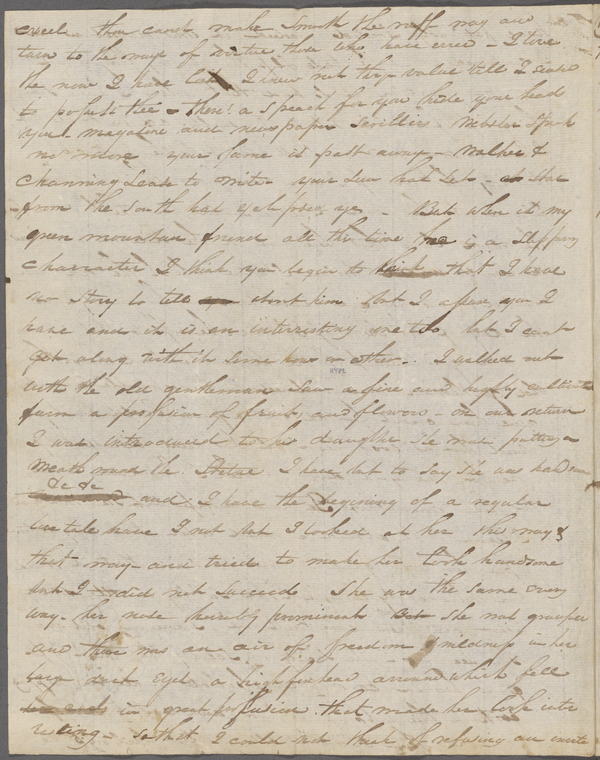 excel thou canst make smooth the ruff way and
turn to the ways of virtue those who have erred - I love
the now I have lost I knew not thy value till I ceased
to possess thee - There! a speach for you hide your head
your magazine and newspaper Webster speak
no more your fame is past away - Walker &
Channing cease to write your sun has set - star
from the south has eclipsed ye - But when is my
green mountain friend all the time he is a slippery
character I think you begin to think that I have
no story to tell about him but I assure you I
have and it is an interesting one too but I cant
get along with it some how or other. I walked out
NYPL
with the old gentleman saw a fine and highly cultivated
farm a profusion of fruits and flowers - on our return
I was introduced to his daughter she was putting a
wreath round the Statue I have but to say she was handsome
&c &c
and I have the begining of a regular
love tale have I not but I looked at her this way &
that way and tried to make her look handsome
but I did not succeed She was the same every
way - her nose horribly prominent But she was graceful
and there was an air of freedom & mildness in her
large dark eyes a high forehead around which fell
in great profusion that made her look inte
resting - so that I could not think of refusing an invite